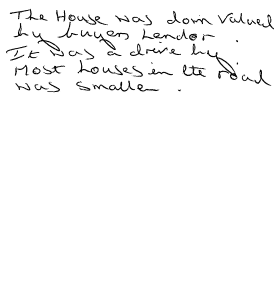 The House was down valued
by buyers Lendor.
It was a drive by.
Most houses in the road
was smaller.